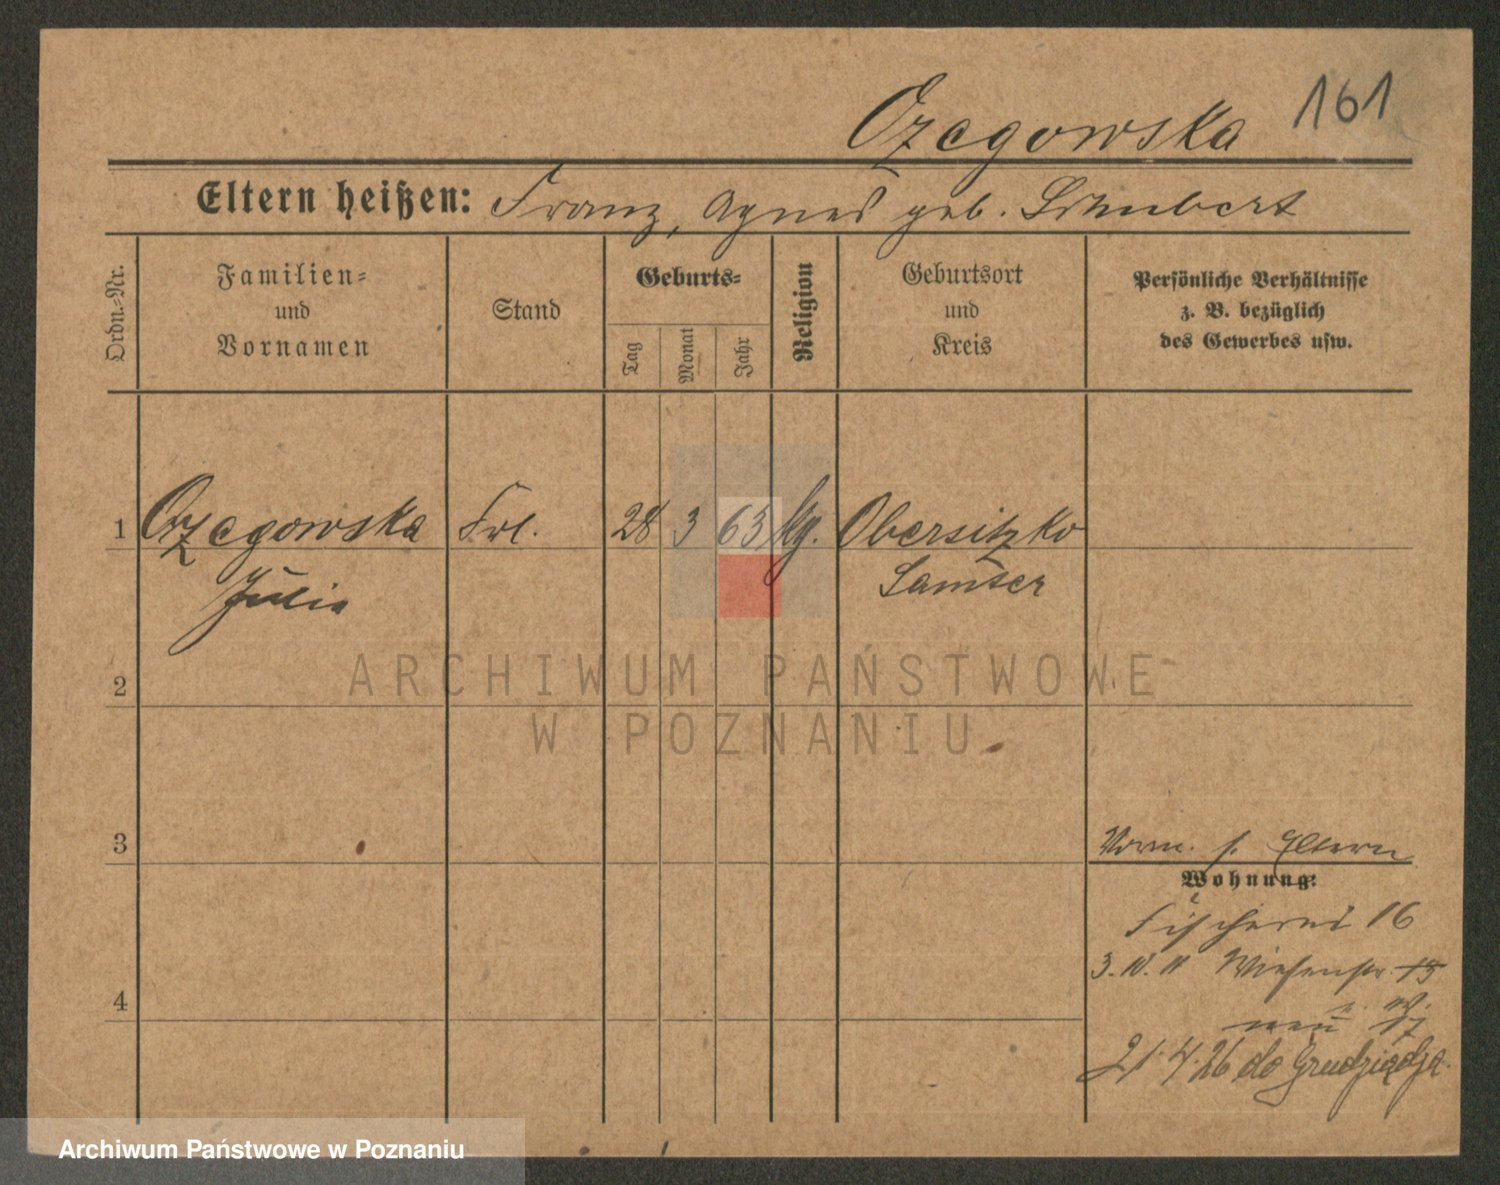 Ozegowska 161
Eltern heißen: Franz, Agnes geb. Schubert
Ordn.-Nr.
Familien-
und
Vornamen
Stand
Geburts-
Tag
Monat
Jahr
Religion
Geburtsort
und
Kreis
Persönliche Verhältnisse
z. B. bezüglich
des Gewerbes usw.
1 Ozegowska Frl. 28 3 63 kg. Obersitzko
Julie Samter
2
3
Vorm. s. Eltern
Wohnung:
Fischerei 16
3. 11. Wiesenstr. 15
neu 17
4
21. 4. 26 do Grudziądza.
ARCHIWUM PAŃSTWOWE
W POZNANIU
Archiwum Państwowe w Poznaniu